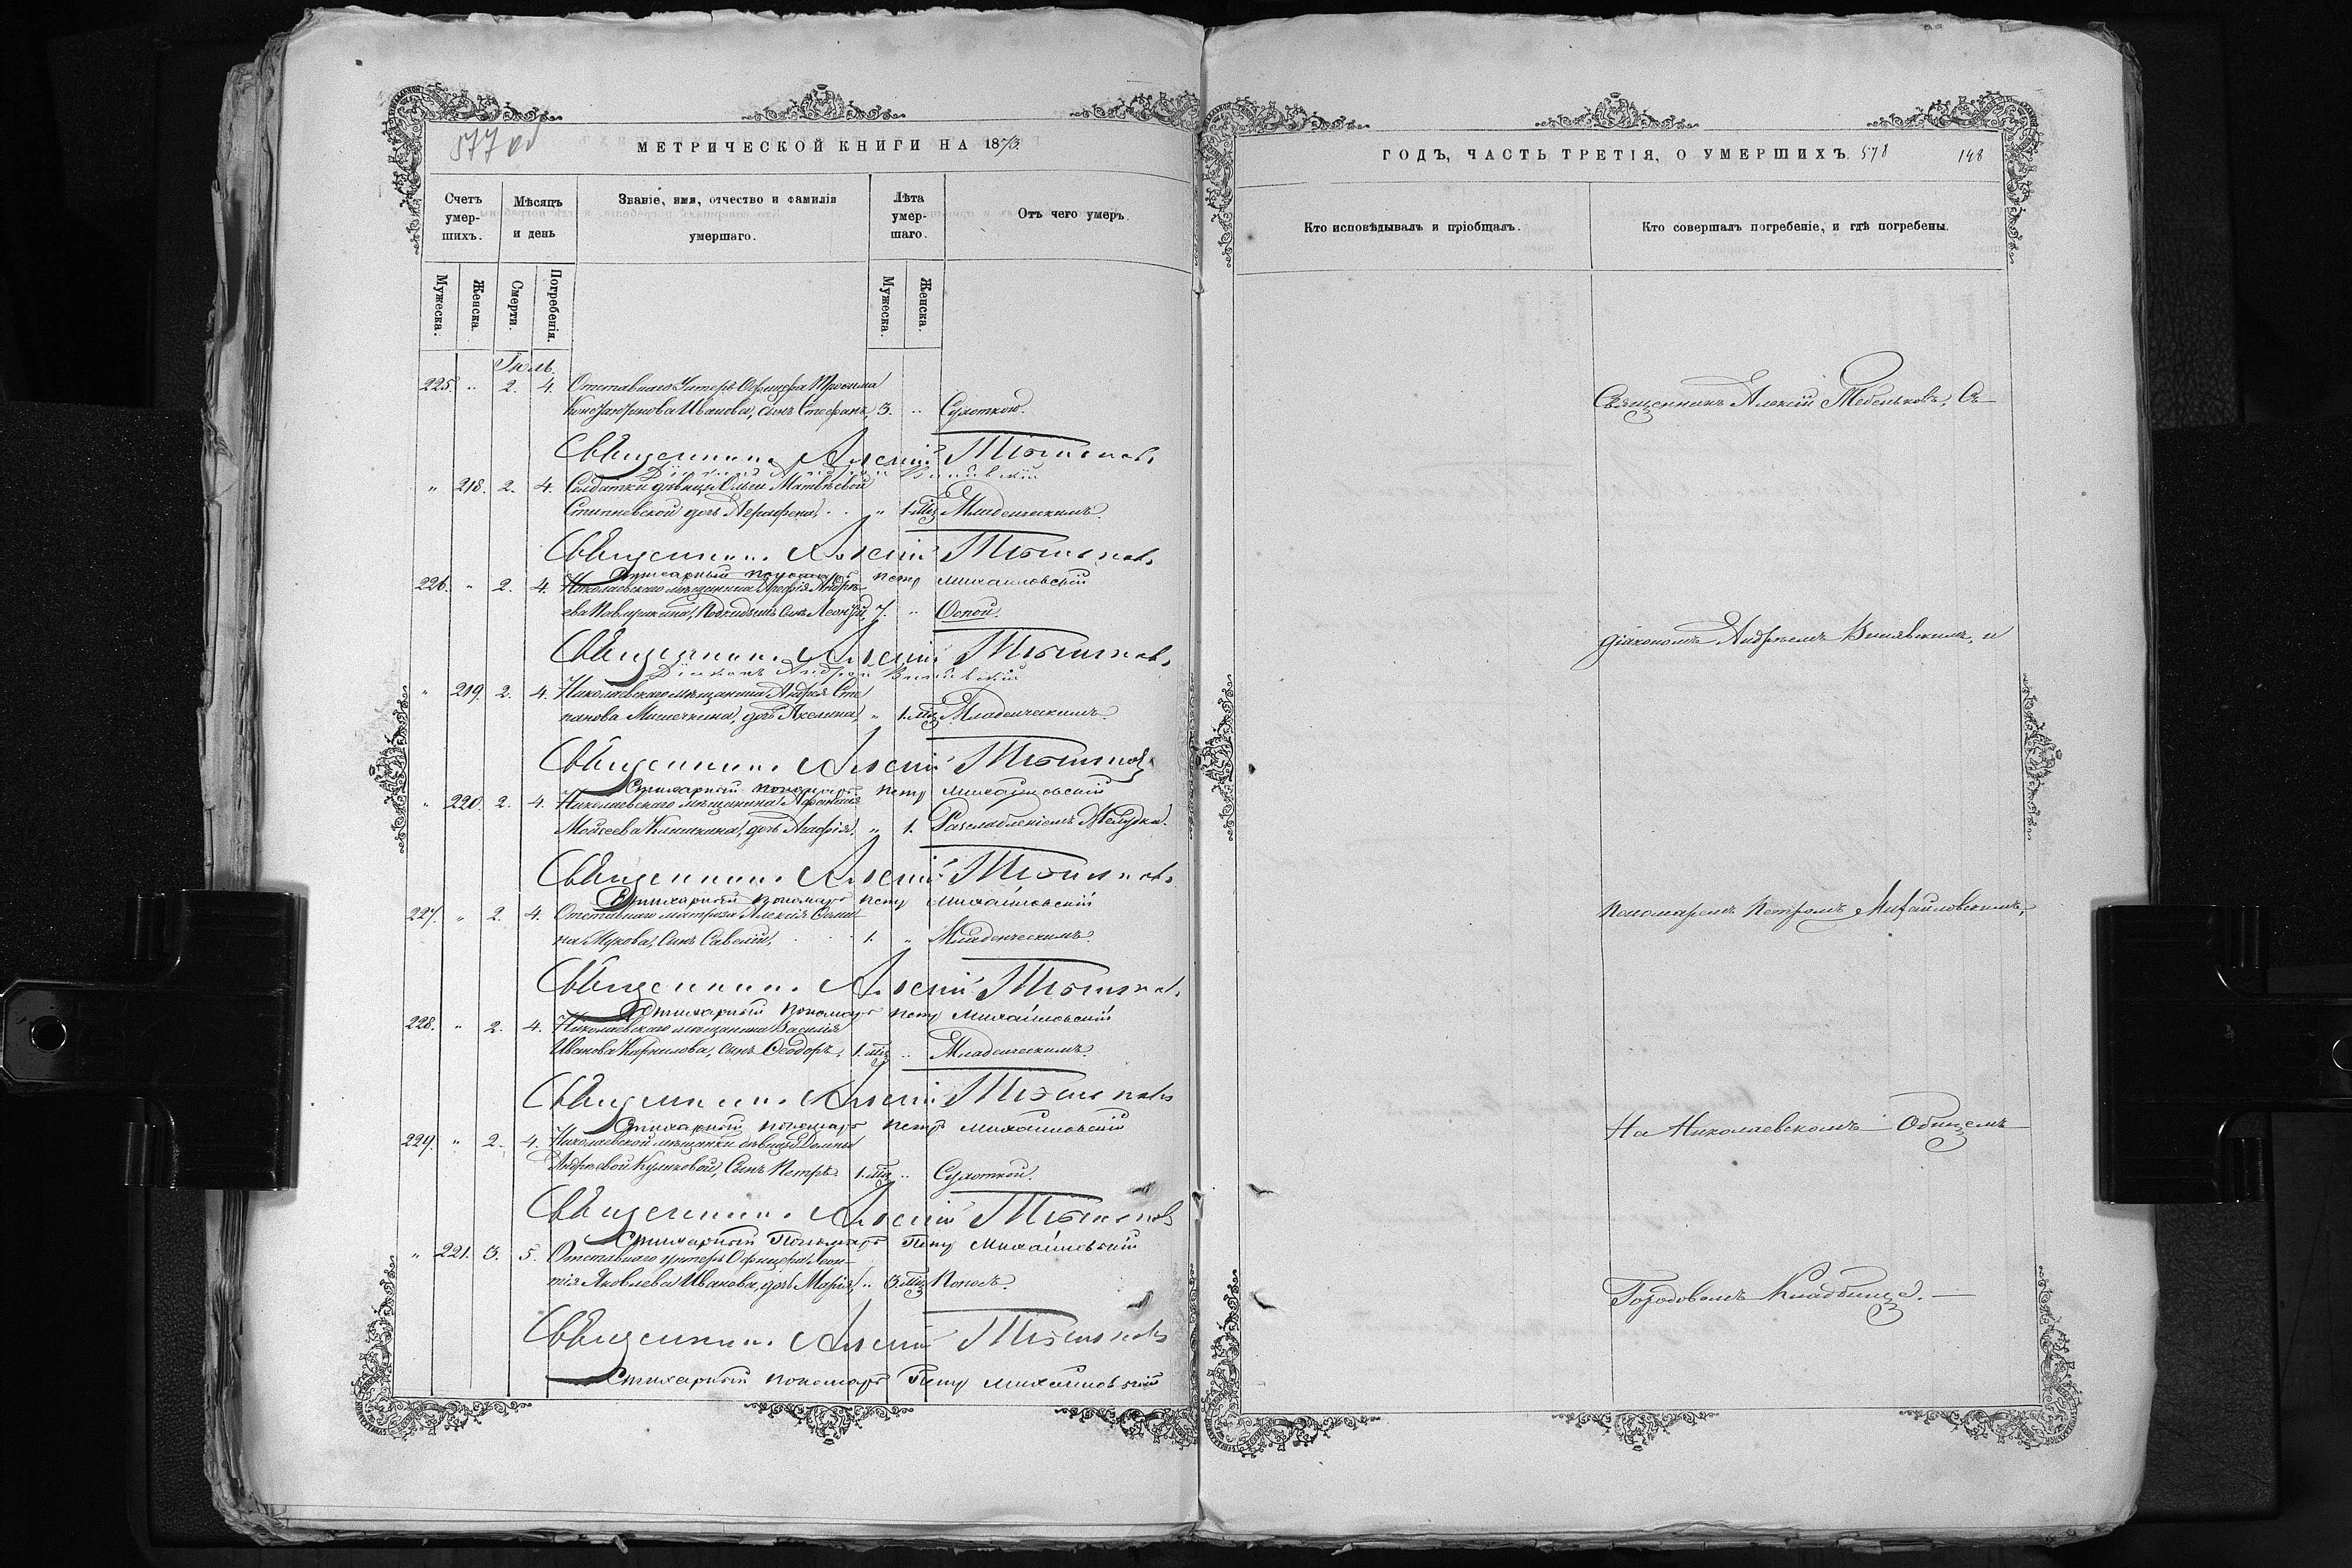 577 об
МЕТРИЧЕСКОЙ КНИГИ НА 1873.
Счетъ умер-шихъ.
Мѣсяцъ и день
Званіе, имя, отчество и фамилія умершаго.
Лѣта умер-шаго.
Отъ чего умеръ.
Мужеска.
Женска.
Смерти.
Погребенія.
Мужеска.
Женска.
Іюль.
225. " 2. 4. Отставнаго Унтеръ Офицера
Иванова, сынъ Стефанъ, 3. " Сухоткою.
Священникъ Алексій
Діаконъ Андрей
" 218. 2. 4. Солдатки дѣвицы Ольги Матвѣевой
дочь Аграфена, " 1. мѣс Младенческимъ.
Священникъ Алексій
Стихарный пономарь Петръ Михайловскій
226. " 2. 4. Николаевскаго мѣщанина
сынъ 7. " Оспой.
Священникъ Алексій
Діаконъ Андрей
" 219. 2. 4. Николаевскаго мѣщанина Андрея Сте
панова дочь Акелина, " 1. мѣс Младенческимъ.
Священникъ Алексій
Стихарный пономарь Петръ Михайловскій
" 220. 2. 4. Николаевскаго мѣщанина Афанасія
Моисеева дочь Агафія, " 1. Разслабленіемъ Желудка.
Священникъ Алексій
Стихарный пономарь Петръ Михайловскій
227. " 2. 4. Отставнаго матроза Алексія
на Мухова, Сынъ Савелій, 1. " Младенческимъ.
Священникъ Алексій
Стихарный пономарь Петръ Михайловскій
228. " 2. 4. Николаевскаго мѣщанина Василія
Иванова Корнилова, сынъ Ѳеодоръ, 1. мѣс " Младенческимъ.
Священникъ Алексій
Стихарный пономарь Петръ Михайловскій
229. " 2. 4. Николаевской мѣщанки дѣвицы Домны
Андреевой Куликовой, Сынъ Петръ 1. мѣс " Сухоткой.
Священникъ Алексій
Стихарный Пономарь Петръ Михайловскій
" 221. 3. 5. Отставнаго унтеръ Офицера Леон-
тія Яковлева Иванова, дочь Марія, " 3. мѣс Поносъ.
Священникъ Алексій
Стихарный пономарь Петръ Михайловскій
ГОДЪ, ЧАСТЬ ТРЕТІЯ, О УМЕРШИХЪ. 578 148
Кто исповѣдывалъ и пріобщалъ.
Кто совершалъ погребеніе, и гдѣ погребены.
Священникъ Алексій Съ
діакономъ Андреемъ и
пономаремъ Петромъ Михайловскимъ,
На Николаевскомъ Общемъ
Городовомъ Кладбище.